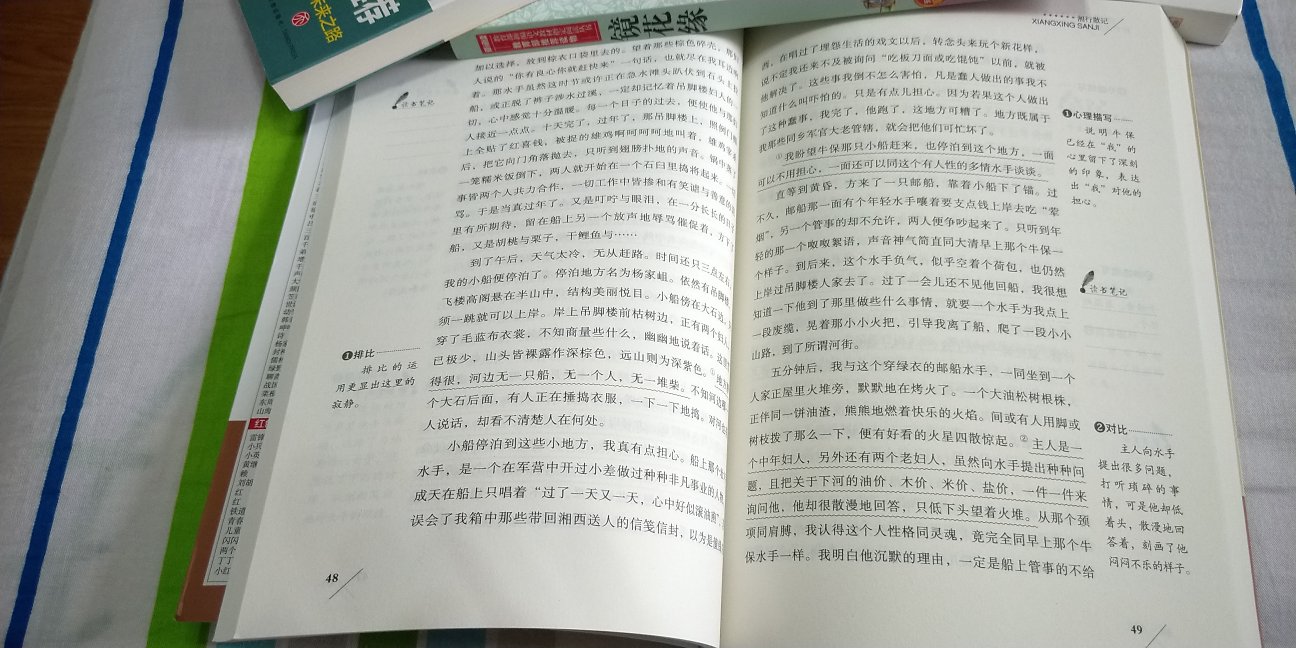 未来之路
镜花缘
湘行散记
XIANGXING SANJI
加以选择,放到棕衣口袋里去的。望着那些棕色碎壳,那
人说的“你有良心你就赶快来”一句话,也就尽在我耳
着。那水手虽然这时节或许正在急水滩头趴伏到石头上
船,或正脱了裤子涉水过溪,一定却记忆着吊脚楼妇人的
切,心中感觉十分温暖。每一个日子的过去,便使他与那
人接近一点点。十天完了,过年了,那吊脚楼上,照例门
上全贴了红喜钱,被捉的雄鸡啊呵呵呵地叫着,雄鸡宰
后,把它向门角落抛去,只听到翅膀扑地的声音。锅中
一笼糯米饭倒下,两人就开始在一个石臼里捣将起来。一
事皆两个人共力合作,一切工作中皆掺和有笑谑与善意的
骂。于是当真过年了。又是叮咛与眼泪,在一分长长的日子
里有所期待,留在船上另一个放声地辱骂催促着,方下
船,又是胡桃与栗子,干鲤鱼与……
到了午后,天气太冷,无从赶路。时间还只三点左右,
我的小船便停泊了。停泊地方名为杨家岨。依然有吊脚楼,
飞楼高阁悬在半山中,结构美丽悦目。小船傍在大石边,
须一跳就可以上岸。岸上吊脚楼前枯树边,正有两个妇人,
穿了毛蓝布衣裳,不知商量些什么,幽幽地说着话。这里
已极少,山头皆裸露作深棕色,远山则为深紫色。①地方
得很,河边无一只船,无一个人,无一堆柴。不知河边
个大石后面,有人正在捶捣衣服,一下一下地捣。对河
人说话,却看不清楚人在何处。
小船停泊到这些小地方,我真有点担心。船上那个
水手,是一个在军营中开过小差做过种种非凡事业的人物,
成天在船上只唱着“过了一天又一天,心中好似滚油煎”,
误会了我箱中那些带回湘西送人的信笺信封,以为是
读书笔记
❶排比
排比的运
用更显出这里的
寂静。
48
西,在唱过了埋怨生活的戏文以后,转念头来玩个新花样,
说不定我还来不及被询问“吃板刀面或吃馄饨”以前,就被
他解决了。这些事我倒不怎么害怕,凡是蠢人做出的事我不
知道什么叫吓怕的。只是有点儿担心。因为若果这个人做出
了这种蠢事,我完了,他跑了,这地方可糟了。地方既属于
我那些同乡军官大老管辖,就会把他们可忙坏了。
①我盼望牛保那只小船赶来,也停泊到这个地方,一面
可以不用担心,一面还可以同这个有人性的多情水手谈谈。
直等到黄昏,方来了一只邮船,靠着小船下了锚。过
不久,邮船那一面有个年轻水手嚷着要支点钱上岸去吃“荤
烟”,另一个管事的却不允许,两人便争吵起来了。只听到年
轻的那一个呶呶絮语,声音神气简直同大清早上那个牛保一
个样子。到后来,这个水手负气,似乎空着个荷包,也仍然
上岸过吊脚楼人家去了。过了一会儿还不见他回船,我很想
知道一下他到了那里做些什么事情,就要一个水手为我点上
一段废缆,晃着那小小火把,引导我离了船,爬了一段小小
山路,到了所谓河街。
五分钟后,我与这个穿绿衣的邮船水手,一同坐到一个
人家正屋里火堆旁,默默地在烤火了。一个大油松树根株,
正伴同一饼油渣,熊熊地燃着快乐的火焰。间或有人用脚或
树枝拨了那么一下,便有好看的火星四散惊起。②主人是一
个中年妇人,另外还有两个老妇人,虽然向水手提出种种问
题,且把关于下河的油价、木价、米价、盐价,一件一件来
询问他,他却很散漫地回答,只低下头望着火堆。从那个颈
项同肩膊,我认得这个人性格同灵魂,竟完全同早上那个牛
保水手一样。我明白他沉默的理由,一定是船上管事的不给
❶心理描写
说明牛保
已经在“我”的
心里留下了深刻
的印象,表达
出“我”对他的
担心。
读书笔记
❷对比
主人向水手
提出很多问题,
打听琐碎的事
情,可是他却低
着头,散漫地回
答着,刻画了他
闷闷不乐的样子。
49